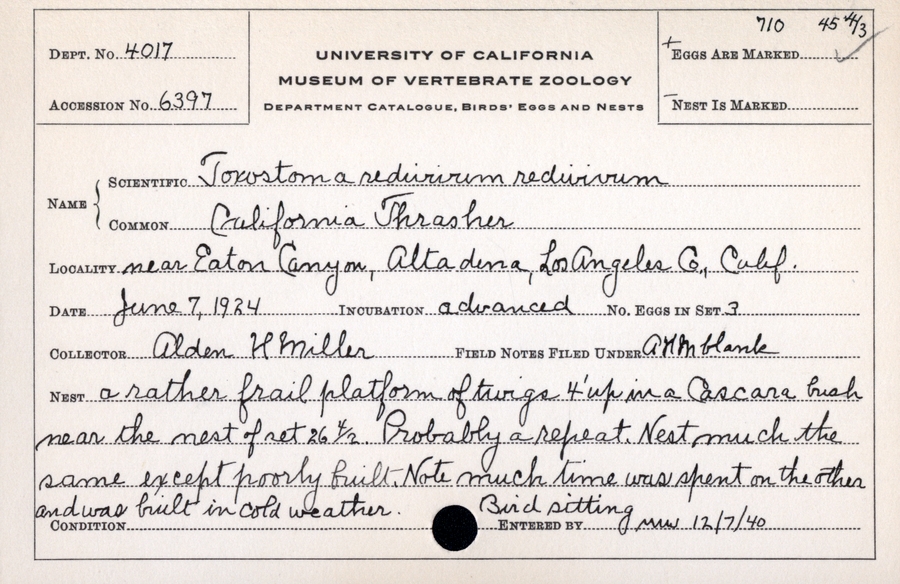 710 45 4/3
DEPT. NO. 4017
UNIVERSITY OF CALIFORNIA
+ EGGS ARE MARKED
MUSEUM OF VERTEBRATE ZOOLOGY
ACCESSION NO. 6397
DEPARTMENT CATALOGUE, BIRDS' EGGS AND NESTS
- NEST IS MARKED
NAME
SCIENTIFIC Toxostoma redivivum redivivum
COMMON California Thrasher
LOCALITY near Eaton Canyon, Altadena, Los Angeles Co., Calif.
DATE June 7, 1924 INCUBATION advanced NO. EGGS IN SET 3
COLLECTOR Alden H Miller FIELD NOTES FILED UNDER AHM blank
NEST a rather frail platform of twigs 4' up in a Cascara bush
near the nest of set 26 4/2. Probably a repeat. Nest much the
same except poorly built. Note much time was spent on the other
and was built in cold weather. Bird sitting
CONDITION ENTERED BY mw 12/7/40